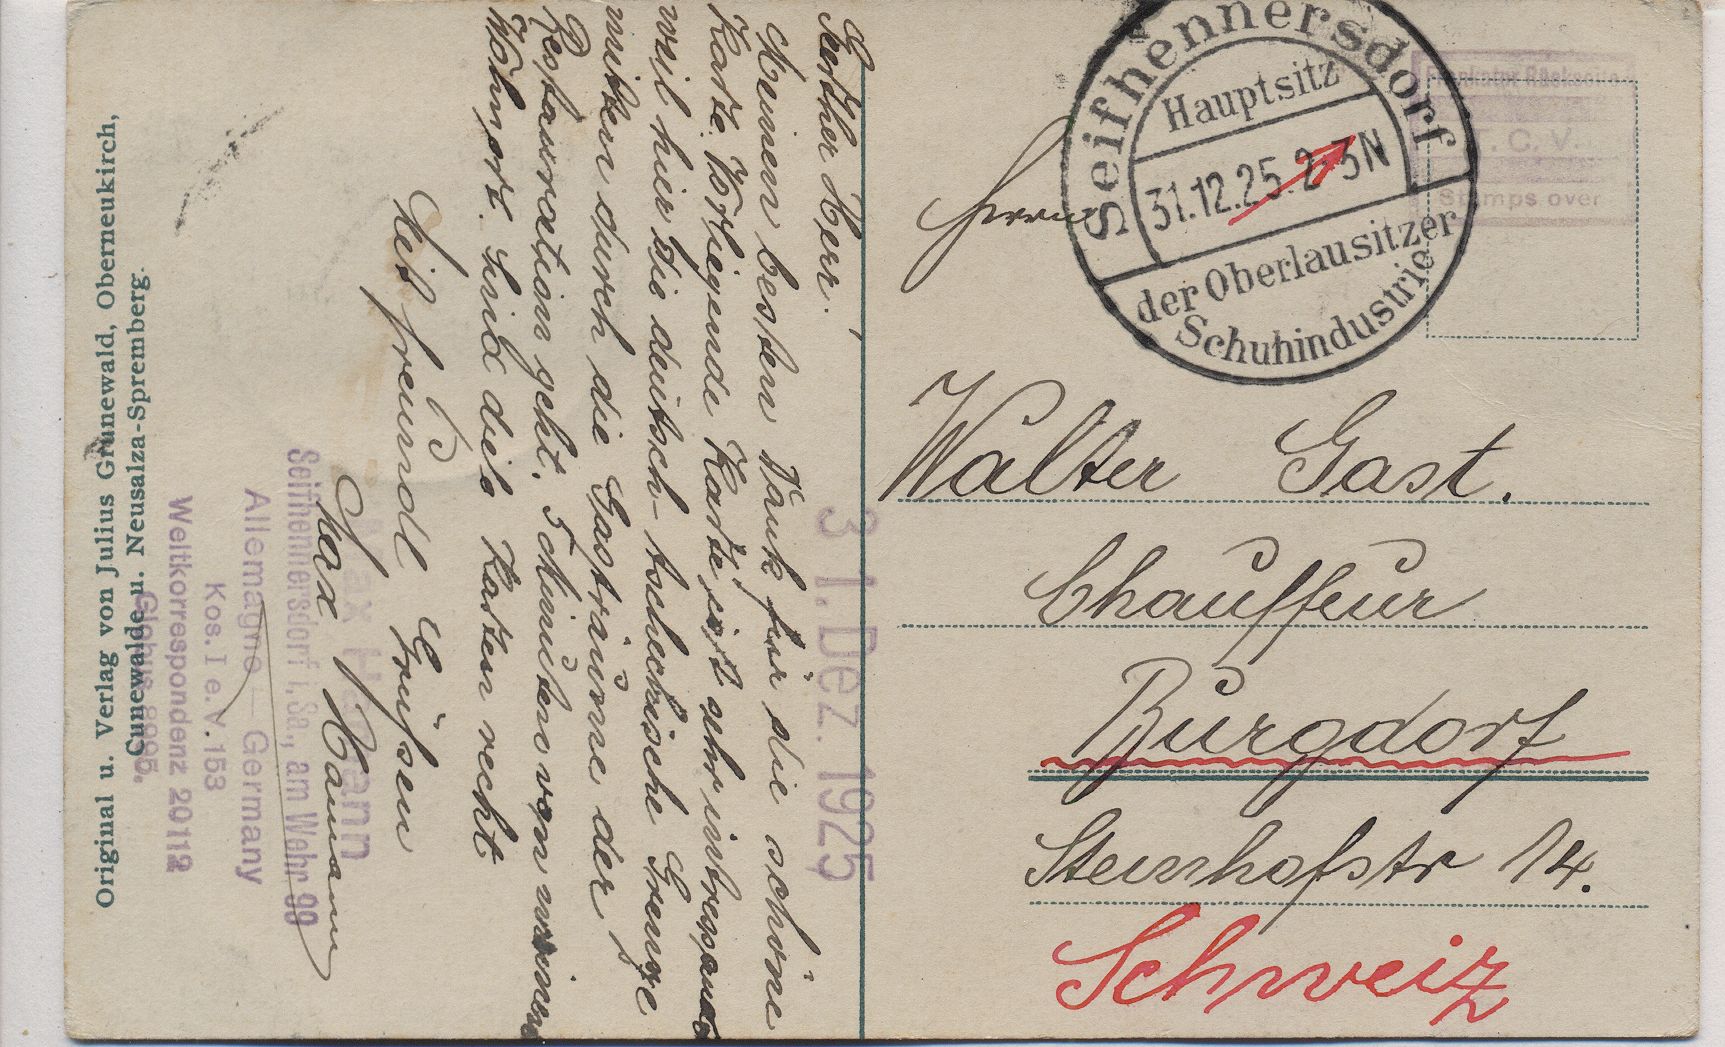 Werther Herr!
Meinen besten Dank für die schöne
Karte. Vorliegende Karte ist sehr interessant
weil hier die deutsch-tschechische Grenze
mitten durch die Gasträume der
Restauration geht. 5 Minuten von meinem
Wohnort. Sind dies Karten recht
Mit freundl Grüßen
Max Hamann
Max Hamann
Seifhennersdorf i. Sa., am Wehr 99
Allemagne – Germany
Kos. I e. V. 153
Weltkorrespondenz 20112
Globus 8995.
Original u. Verlag von Julius Grünewald, Oberneukirch,
Cunewalde u. Neusalza-Spremberg.
31. Dez. 1925
Seifhennersdorf
Hauptsitz
31.12.25. 2-3N
der Oberlausitzer
Schuhindustrie
Frankatur Rückseite
T. C. V.
Stamps over
Herrn
Walter Gast.
Chauffeur
Burgdorf
Steinhofstr 14.
Schweiz